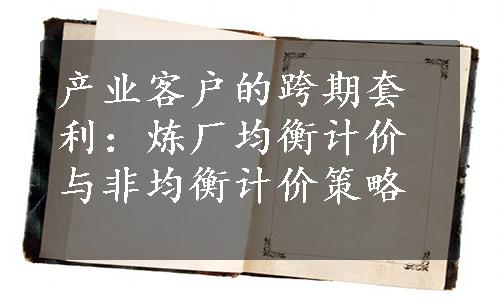 产业客户的跨期套
利：炼厂均衡计价
与非均衡计价策略